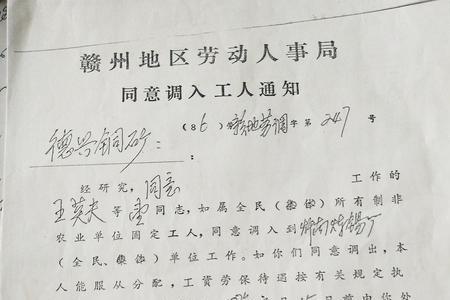 赣州地区劳动人事局
同意调入工人通知
(86)赣地劳调字第247号
德兴铜矿:
:
经研究,同意 工作的
王英夫等壹同志,如属全民(集体)所有制非
农业单位固定工人,同意调入到赣南炼锡厂
(全民、集体)单位工作。如你们同意调出,本
人能服从分配,工资劳保待遇按有关规定执